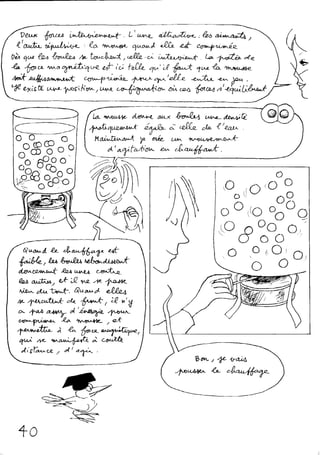 Deux forces interviennent. L'une, attractive, les aimants,
l'autre répulsive. La mousse quand elle est comprimée.
Dès que les boules se touchent, celle-ci intervient. La portée de
la force magnétique est ici telle qu'il faut que la mousse
soit suffisamment comprimée pour qu'elle entre en jeu.
Il existe une position, une configuration où ces forces s'équilibrent
La mousse donne aux boules une densité
pratiquement égale à celle de l'eau.
Maintenant je crée un mouvement
d'agitation en chauffant.
Quand le chauffage est
faible, les boules rebondissent
doucement les unes contre
les autres, et il ne se passe
rien du tout. Quand elles
se percutent de front, il n'y
a pas assez d'énergie pour
comprimer la mousse, et
permettre à la force magnétique,
qui se manifeste à courte
distance, d'agir.
Bon, je vais
pousser le chauffage.
40